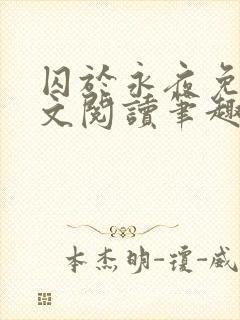 囚於永夜免
文閱讀筆趣
本杰明-瓊-威